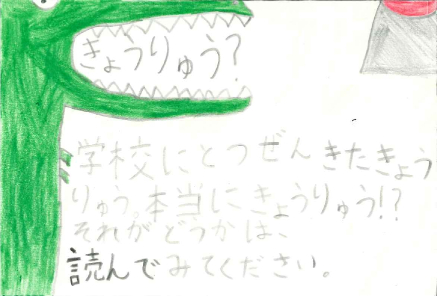 きょうりゅう?
学校にとつぜんきたきょう
りゅう。本当にきょうりゅう!?
それがどうかは、
読んでみてください。